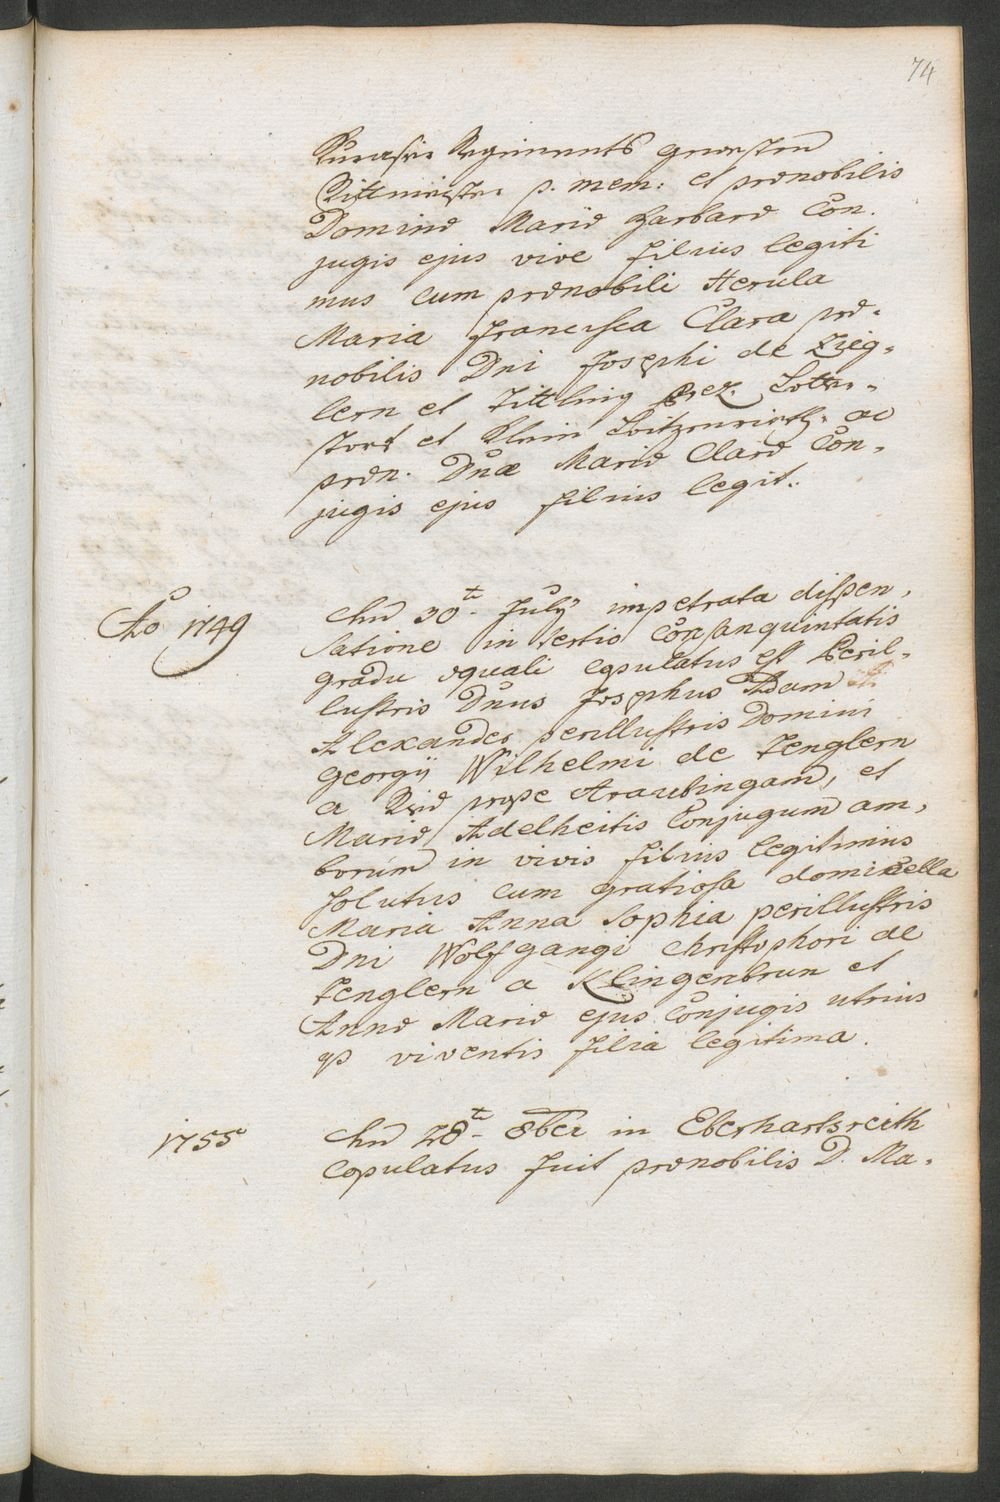 74
Kurasier Regiments gewesten
Rittmeister p. mem: et prænobilis
Dominæ Mariæ Barbaræ Con.
jugis ejus vivæ filius legiti
mus cum prænobili Herula
Maria Francisca Clara præ=
nobilis Dni Josephi de Zieg=
lern et Tittling
storf et Klein ac
præn. Dnæ Mariæ Claræ Con=
jugis ejus filius legit:
Ao 1749
30t. July impetrata dispen,
satione in tertio Consanquintatis
gradu æquali copulatus est Peril=
lustris Dnus Josephus Adam
Alexander perillustris Domini
Georgij Wilhelmi de Zenglern
a Ried prope Straubingam, et
Mariæ Adelheitis Conjugum am,
borum in vivis filius legitimus
solutus cum gratiosa domicella
Maria Anna Sophia perillustris
Dni Wolfgangi Christophori de
Zenglern a Klingenbrun et
Annæ Mariæ ejus Conjugis utrius
qs viventis filia legitima.
1755
28t. 8ber in Eberhartsreith
Copulatus fuit prænobilis D. Ma=